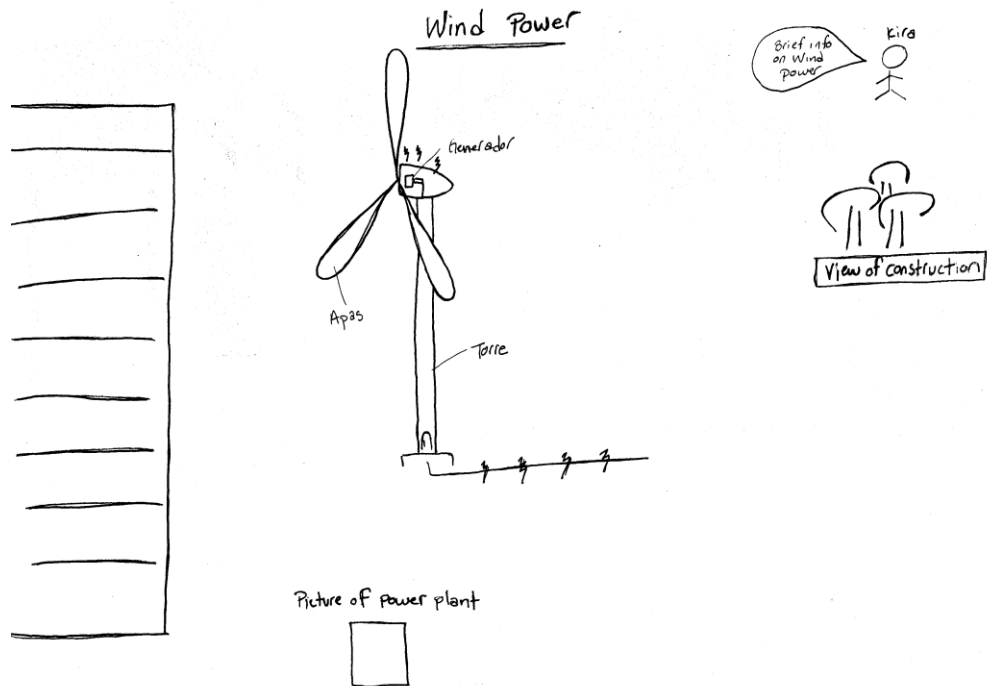 Wind Power
Kira
Brief info
on Wind
Power
Generador
Apas
Torre
View of construction
Picture of power plant